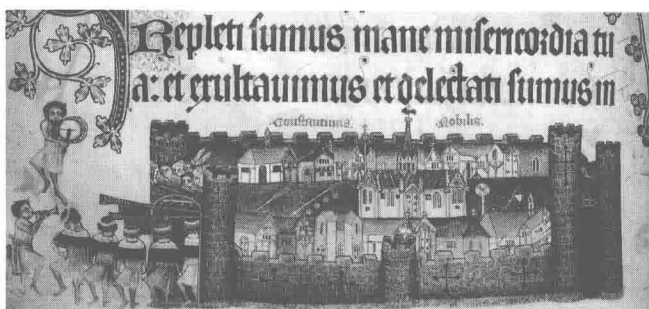 Repleti sumus mane misericordia tu
a: et exultauimus et delectati sumus in
Constantinus. Nobilis.